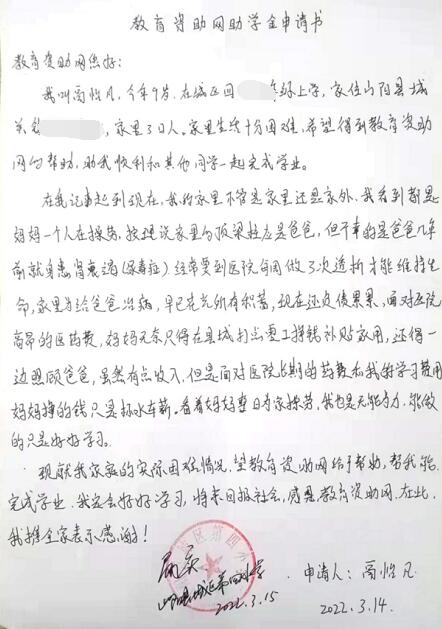 教育资助网助学金申请书
教育资助网您好：
我叫高怡凡，今年9岁，在城区四 上学，家住山阳县城
关 ，家里3口人。家里生活十分困难，希望得到教育资助
网的帮助，助我顺利和其他同学一起完成学业。
在我记事起到现在，我的家里不管是家里还是家外，我看到都是
妈妈一个人在操劳，按理说家里的顶梁柱应是爸爸，但不幸的是爸爸几年
前就身患肾衰竭（尿毒症）经常要到医院每周做了3次透析才能维持生
命，家里为给爸爸治病，早已花光所有积蓄，现在还负债累累，面对医院
高昂的医药费，妈妈无奈只得在县城打点零工挣钱补贴家用，还得一
边照顾爸爸，虽然有点收入，但是面对医院长期的药费和我的学习费用
妈妈挣的钱只是杯水车薪。看着妈妈整日为家操劳，我也是无能为力，能做
的只是好好学习。
现就我家庭的实际困难情况，望教育资助网给予帮助，帮我能
完成学业，我定会好好学习，将来回报社会，感恩教育资助网。在此，
我携全家表示感谢！
属实
山阳县城区第四小学
2022.3.15
申请人：高怡凡
2022.3.14.